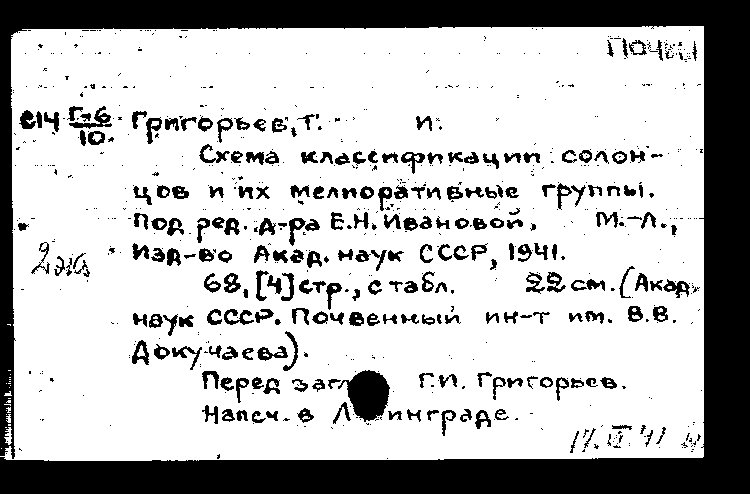 Почвы
С14 Г-6 Григорьев, Г. И.
10.
Схема классификации солон-
цов и их мелиоративные группы.
Под ред. д-ра Е.Н. Ивановой, М.-Л.,
2 экз Изд-во Акад. наук СССР, 1941.
68, [4] стр., с табл. 22 см. (Акад.
наук СССР. Почвенный ин-т им. В.В.
Докучаева).
Перед загл. Г.И. Григорьев.
Напеч. в Л инграде.